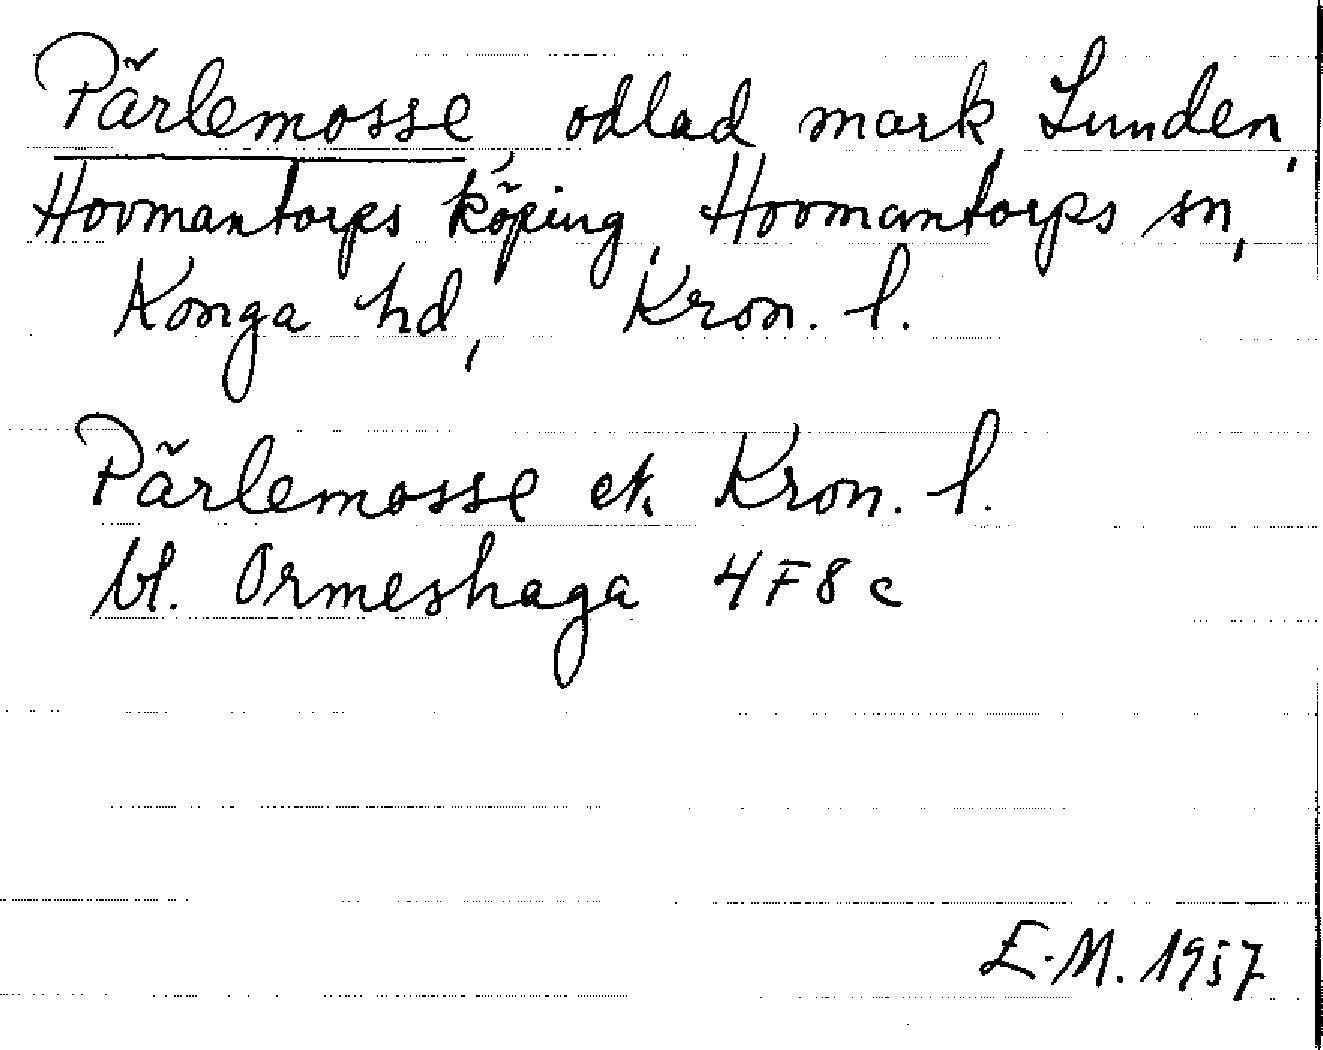 Pärlemosse, odlad mark, Lunden,
Hovmantorps köping, Hovmantorps sn,
Konga hd, Kron. l.
Pärlemosse ek. Kron. l.
bl. Ormeshaga 4F8c
E.M. 1957